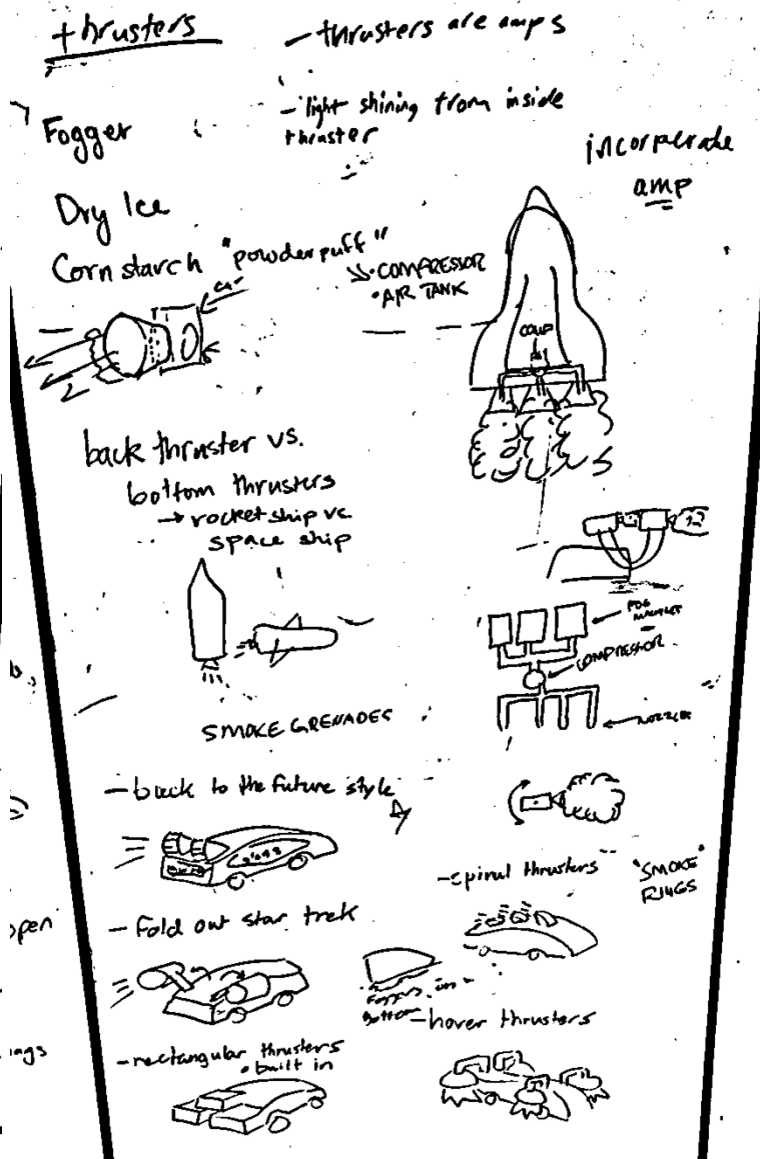 thrusters
- thrusters are amps
- light shining from inside
thruster
Fogger
incorperate
amp
Dry Ice
Corn starch "powder puff"
• COMPRESSOR
• AIR TANK
back thruster vs.
bottom thrusters
→ rocket ship vs.
space ship
FOG
COMPRESSOR
NOZZLES
SMOKE GRENADES
- back to the future style
- spinal thrusters
"SMOKE"
RINGS
open
- fold out star trek
Foggers in
Bottom
- hover thrusters
- rectangular thrusters
• built in